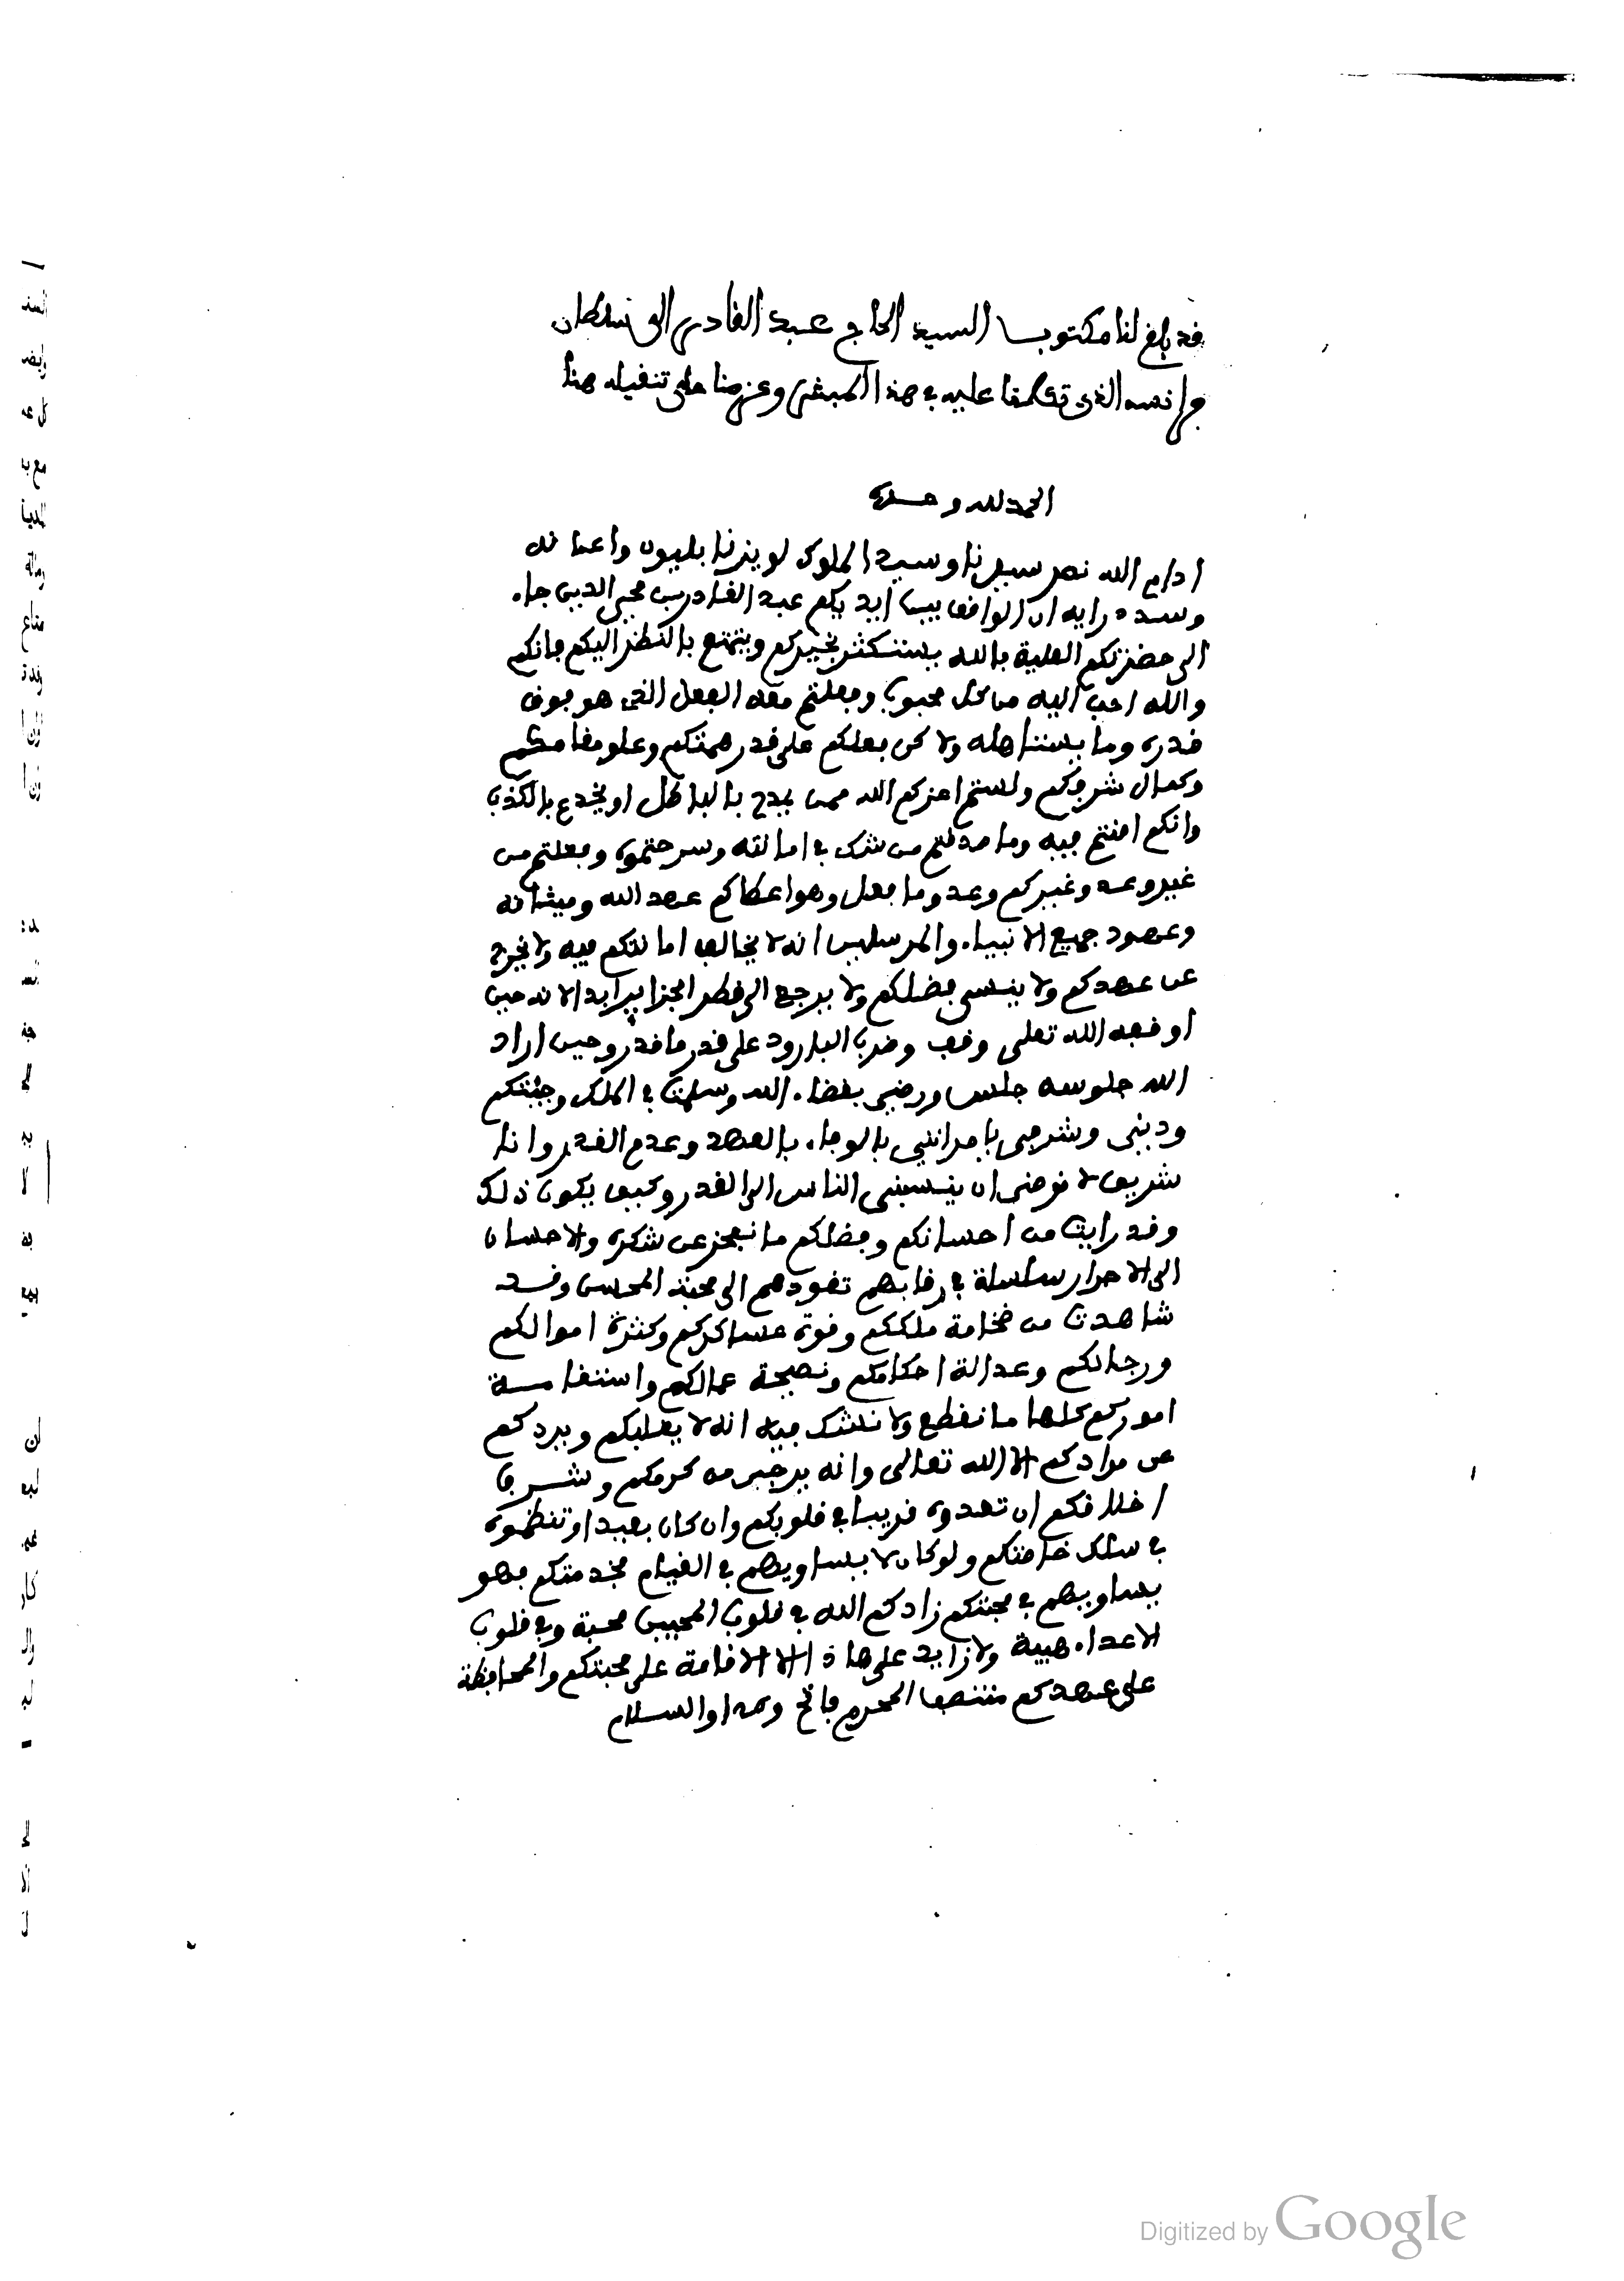 قد بلغ لنا مكتوب السيد الحاج عبد القادر الى سلطان
فرانسه الذي تكلمنا عليه في هذا المبشر وعزمنا على تنقيله هنا
الحمد لله وحده
ادام الله نصر سيدنا وسيد الملوك لويز نابليون واعانه
وسدد رايه ان الواقف بين ايديكم عبد القادر بن محيي الدين جاء
الى حضرتكم العلية بالله يستكثر بخيركم ويتمتع بالنظر اليكم فانكم
والله احب اليه من كل محبوب وفعلتم معه الفعل الذي هو فوق
قدره وما يستاهله ولاكن فعلكم على قدر همتكم وعلو مقامكم
وكمال شرفكم ولستم اعزكم الله ممن يمدح بالباطل او يخدع بالكذب
وانكم امنتم فيه وما صدقتم من شك في امانته وسرحتموه وفعلتم من
غير وعد وغيركم وعد وما فعل وهو اعطاكم عهد الله وميثاقه
وعهود جميع الانبياء والمرسلين انه لا يخالف امانتكم فيه ولا يخرج
عن عهدكم ولا ينسى فضلكم ولا يرجع الى قطر الجزاير ابدا لانه حين
اوقفه الله تعلى وقف وضرب البارود على قدر ما قدر وحين اراد
الله جلوسه جلس ورضي بقضاء الله وسلمت في الملك وجئتكم
وديني وشرفي يامرانني بالوفاء بالعهد وعدم الغدر وانا
شريف لا نرضى ان ينسبني الناس الى الغدر وكيف يكون ذلك
وقد رايت من احسانكم وفضلكم ما نعجز عن شكره والاحسان
الى الاحرار سلسلة في رقابهم تقودهم الى محبة المحسن وقد
شاهدت من ضخامة ملككم وقوة عساكركم وكثرة اموالكم
ورجالكم وعدالة احكامكم ونصيحة عمالكم واستقامة
اموركم كلها ما نقطع ولا نشك فيه انه لا يغلبكم ويردكم
عن مرادكم الا الله تعالى وانه يرجى من كرمكم وشرف
اخلاقكم ان تعدوه قريبا في قلوبكم وان كان بعيدا وتنظموه
في سلك خدامتكم ولو كان لا يساويهم في القيام بخدمتكم فهو
يساويهم في محبتكم زادكم الله في قلوب المحبين محبة وفي قلوب
الاعداء هيبة ولا زايد على هاذا الا الاقامة على محبتكم والمحافظة
على عهدكم منتصف المحرم فاتح والسلام